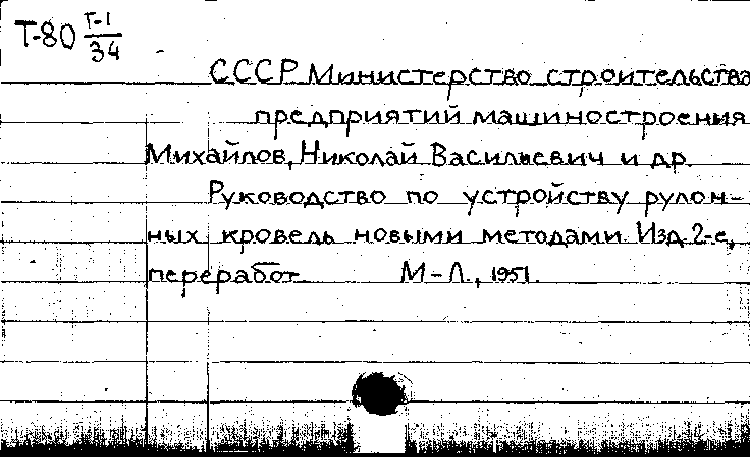 Т-80 Т-1/34
СССР Министерство строительства
предприятий машиностроения
Михайлов, Николай Васильевич и др.
Руководство по устройству рулон-
ных кровель новыми методами. Изд. 2-е,
переработ. М-Л., 1951.